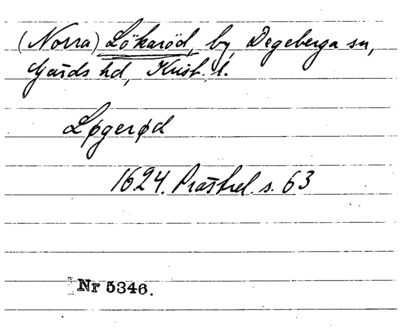 (Norra) Lökaröd, by, Degeberga sn,
Gärds hd, Krist. l.
Løgerød
1624. Prästrel. s. 63
Nr 5346.